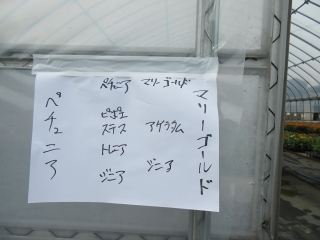 マリーゴールド
ペチュニア マリーゴールド
ビオラ
ステス アゲラタム
トレニア
ジニア ジニア
ペチュニア